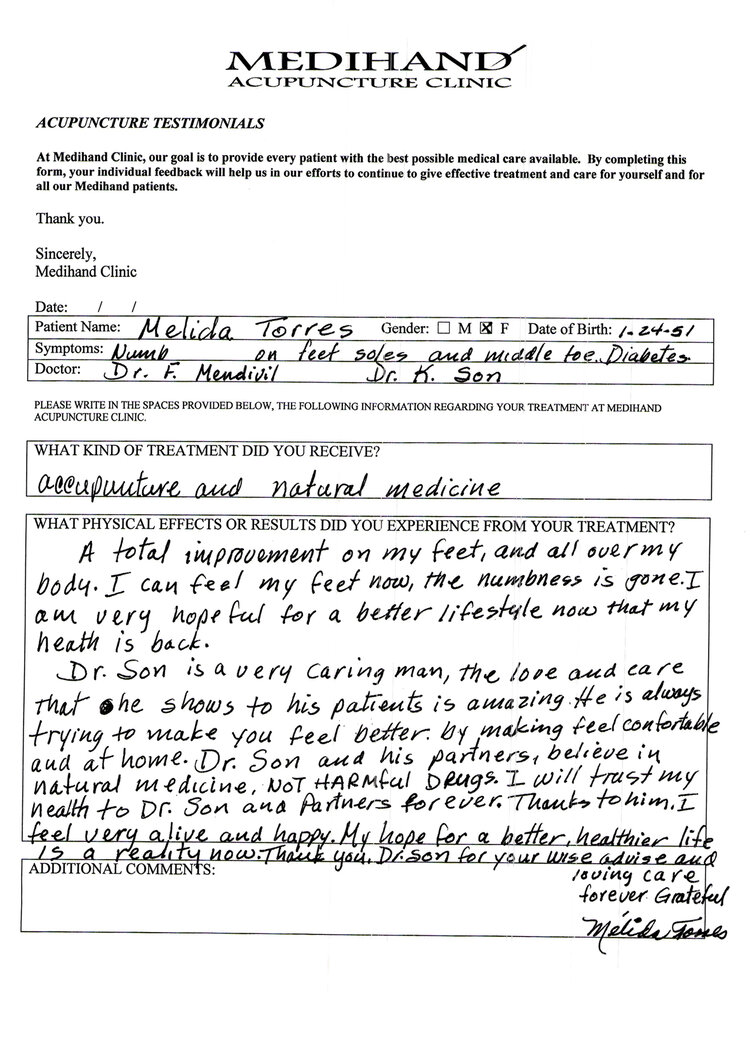 MEDIHAND
ACUPUNCTURE CLINIC
ACUPUNCTURE TESTIMONIALS
At Medihand Clinic, our goal is to provide every patient with the best possible medical care available. By completing this
form, your individual feedback will help us in our efforts to continue to give effective treatment and care for yourself and for
all our Medihand patients.
Thank you.
Sincerely,
Medihand Clinic
Date: / /
Patient Name: Melida Torres Gender: ☐ M ☒ F Date of Birth: 1-24-51
Symptoms: Numb on feet soles and middle toe.. Diabetes
Doctor: Dr. F. Mendivil Dr. K. Son
PLEASE WRITE IN THE SPACES PROVIDED BELOW, THE FOLLOWING INFORMATION REGARDING YOUR TREATMENT AT MEDIHAND
ACUPUNCTURE CLINIC.
WHAT KIND OF TREATMENT DID YOU RECEIVE?
accupunture and natural medicine
WHAT PHYSICAL EFFECTS OR RESULTS DID YOU EXPERIENCE FROM YOUR TREATMENT?
A total improvement on my feet, and all over my
body. I can feel my feet now, the numbness is gone. I
am very hopeful for a better lifestyle now that my
heath is back.
Dr. Son is a very caring man, the love and care
that he shows to his patients is amazing. He is always
trying to make you feel better. by making feel confortable
and at home. Dr. Son and his partners, believe in
natural medicine, NOT HARMful DRUGS. I will trust my
health to Dr. Son and Partners forever. Thanks to him, I
feel very alive and happy. My hope for a better, healthier life
is a reality now. Thank you, Dr. Son for your wise advise and
ADDITIONAL COMMENTS:
loving care
forever Grateful
Mélida Torres